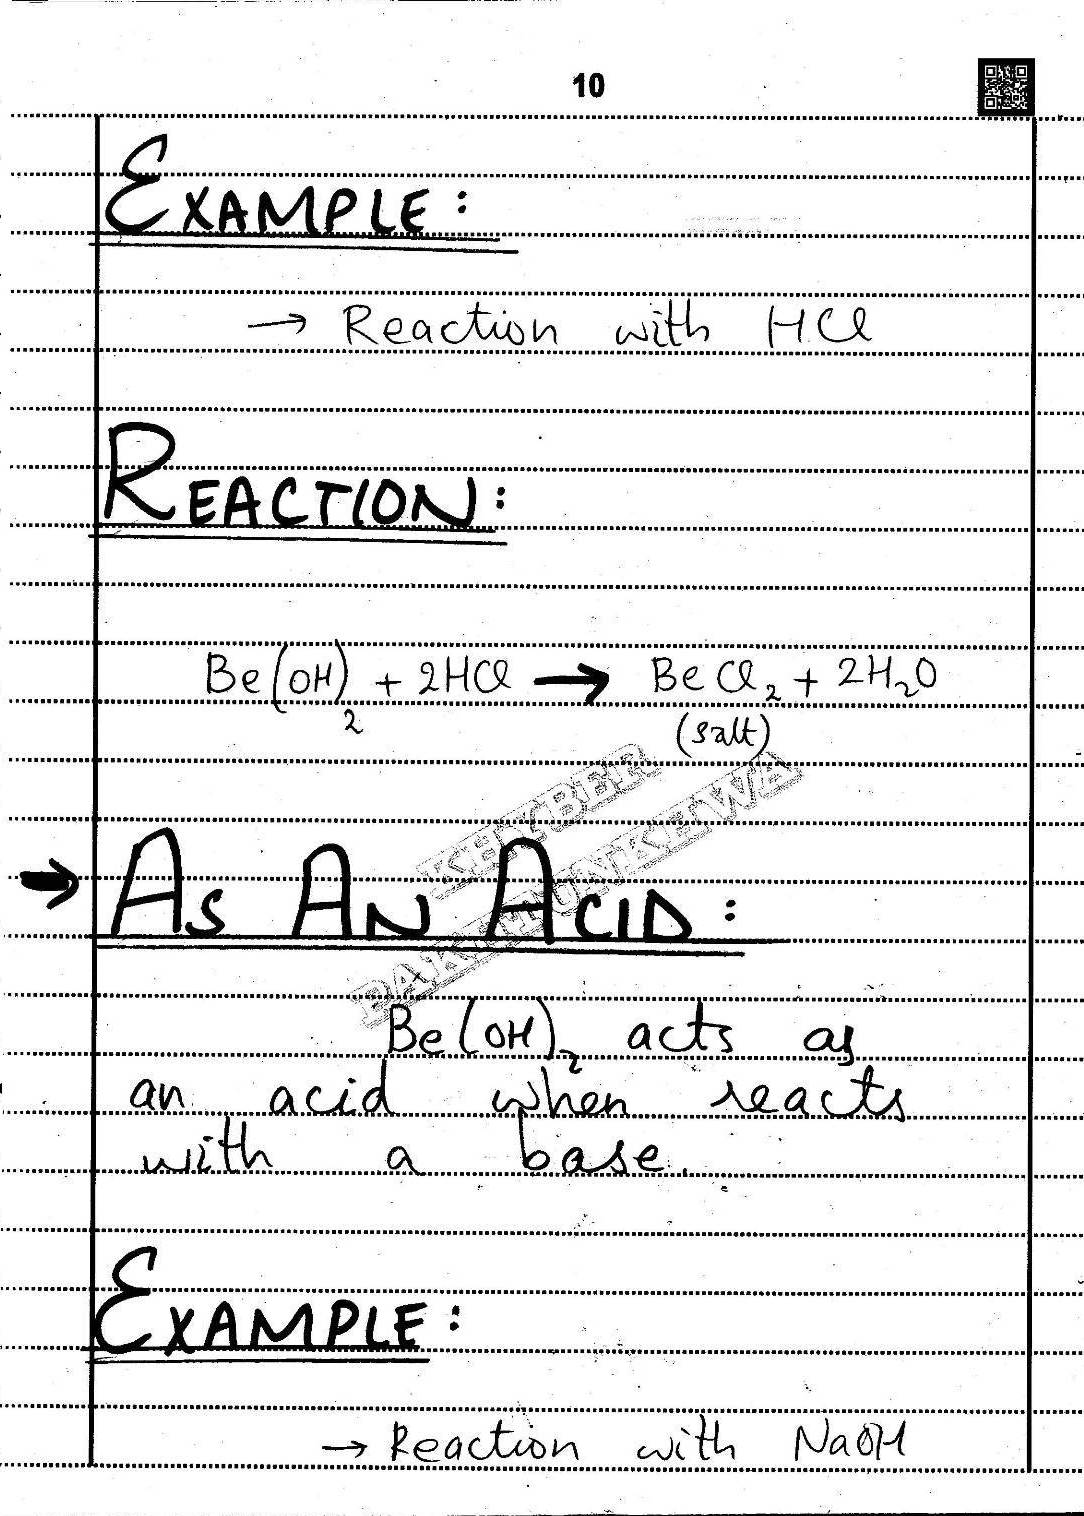 10
EXAMPLE:
→ Reaction with HCl
REACTION:
Be(OH)₂ + 2HCl → BeCl₂ + 2H₂O
(salt)
KHYBER
PAKHTUNKHWA
→ AS AN ACID:
Be(OH)₂ acts as
an acid when reacts
with a base.
EXAMPLE:
→ Reaction with NaOH